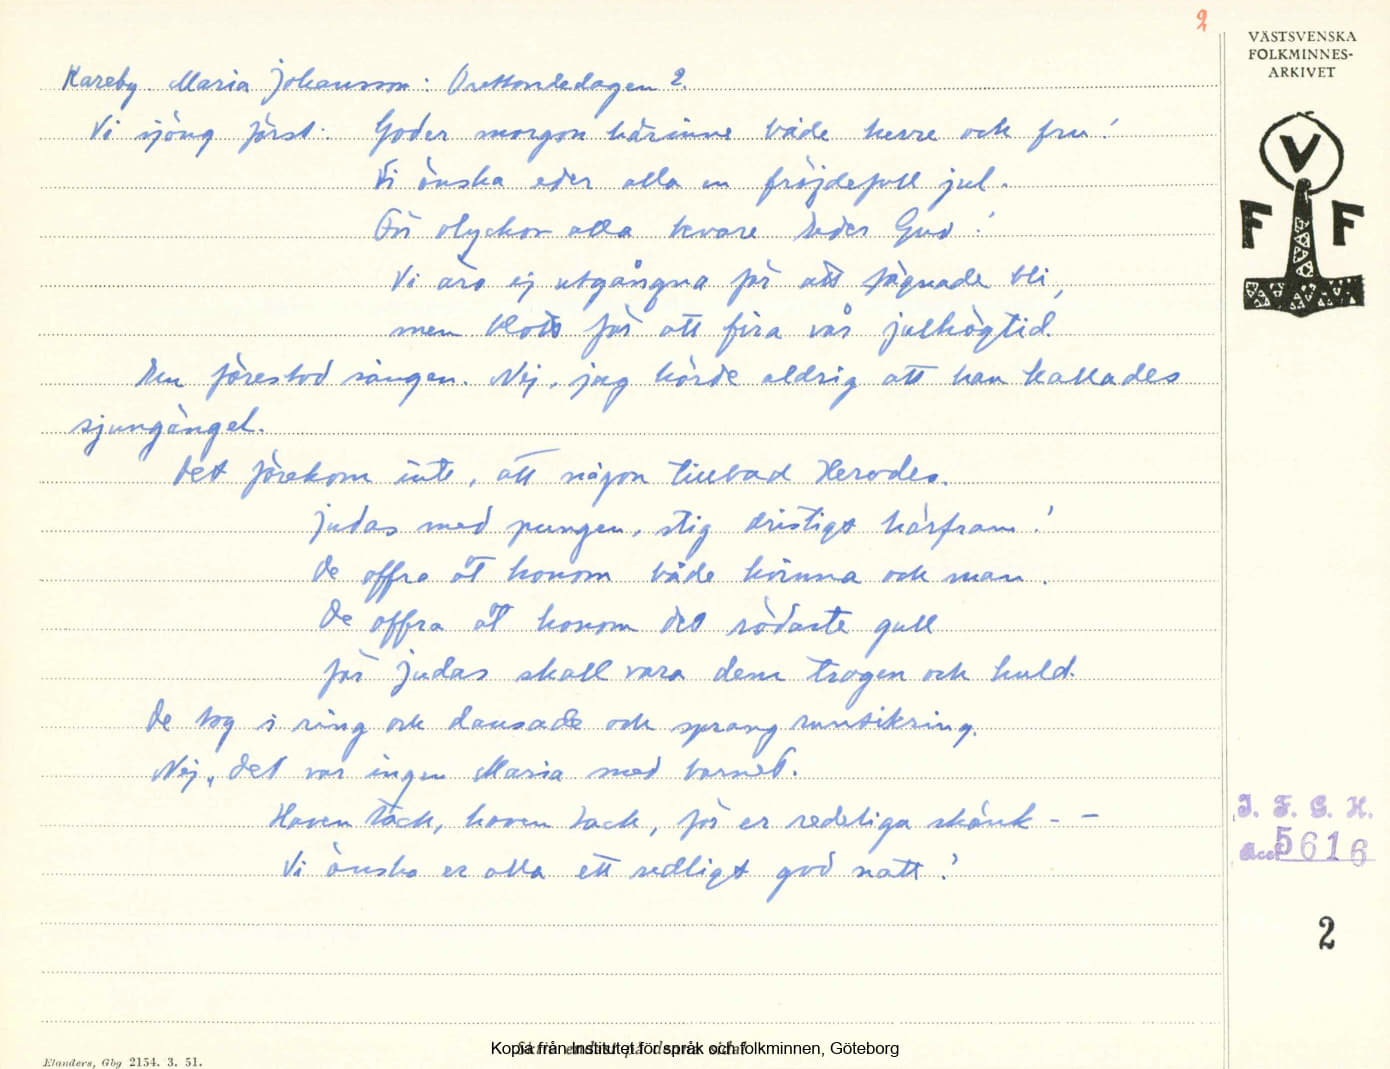 2
VÄSTSVENSKA
FOLKMINNES-
ARKIVET
V
F F
Kareby. Maria Johansson: Trettondedagen 2.
Vi sjöng först: Goder morgon härinne både herre och fru!
Vi önska eder alla en fröjdefull jul.
För olyckor alla bevare Eder Gud!
Vi äro ej utgångna för att fägnade bli,
men blott för att fira vår julhögtid.
Den förestod sången. Nej, jag hörde aldrig att han kallades
sjungängel.
Det förekom inte, att någon tillbad Herodes.
Judas med pungen, stig dristigt härfram!
De offra åt honom både kvinna och man.
De offra åt honom det rödaste gull
för Judas skall vara dem trogen och huld.
De tog i ring och dansade och sprang runtikring.
Nej, det var ingen Maria med barnet.
Haven tack, haven tack, för er redeliga skänk - -
Vi önska er alla ett redligt god natt!
I. F. G. H.
Acc. 5616
2
Kopia från Institutet för språk och folkminnen, Göteborg
Elanders, Gbg 2154. 3. 51.